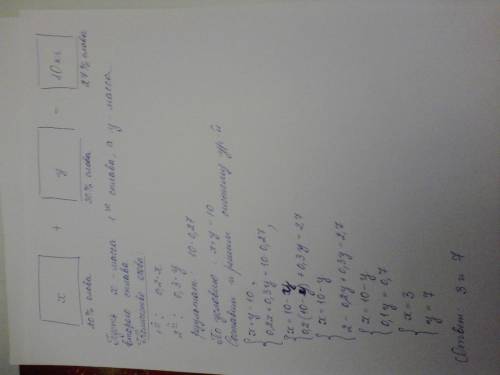 x + y = 10 кг
20% олова 30% олова 27% олова
Пусть x - масса 1го сплава, а y - масса
второго сплава.
Количество олова
1й: 0,2·x
2й: 0,3·y
10·0,27
По условию x+y=10
Составим и решим систему ур-й
x+y=10,
0,2x+0,3y=10·0,27;
x=10-y
0,2(10-y)+0,3y=2,7
x=10-y
2-0,2y+0,3y=2,7
x=10-y
0,1y=0,7
x=3
y=7
Ответ: 3 и 7